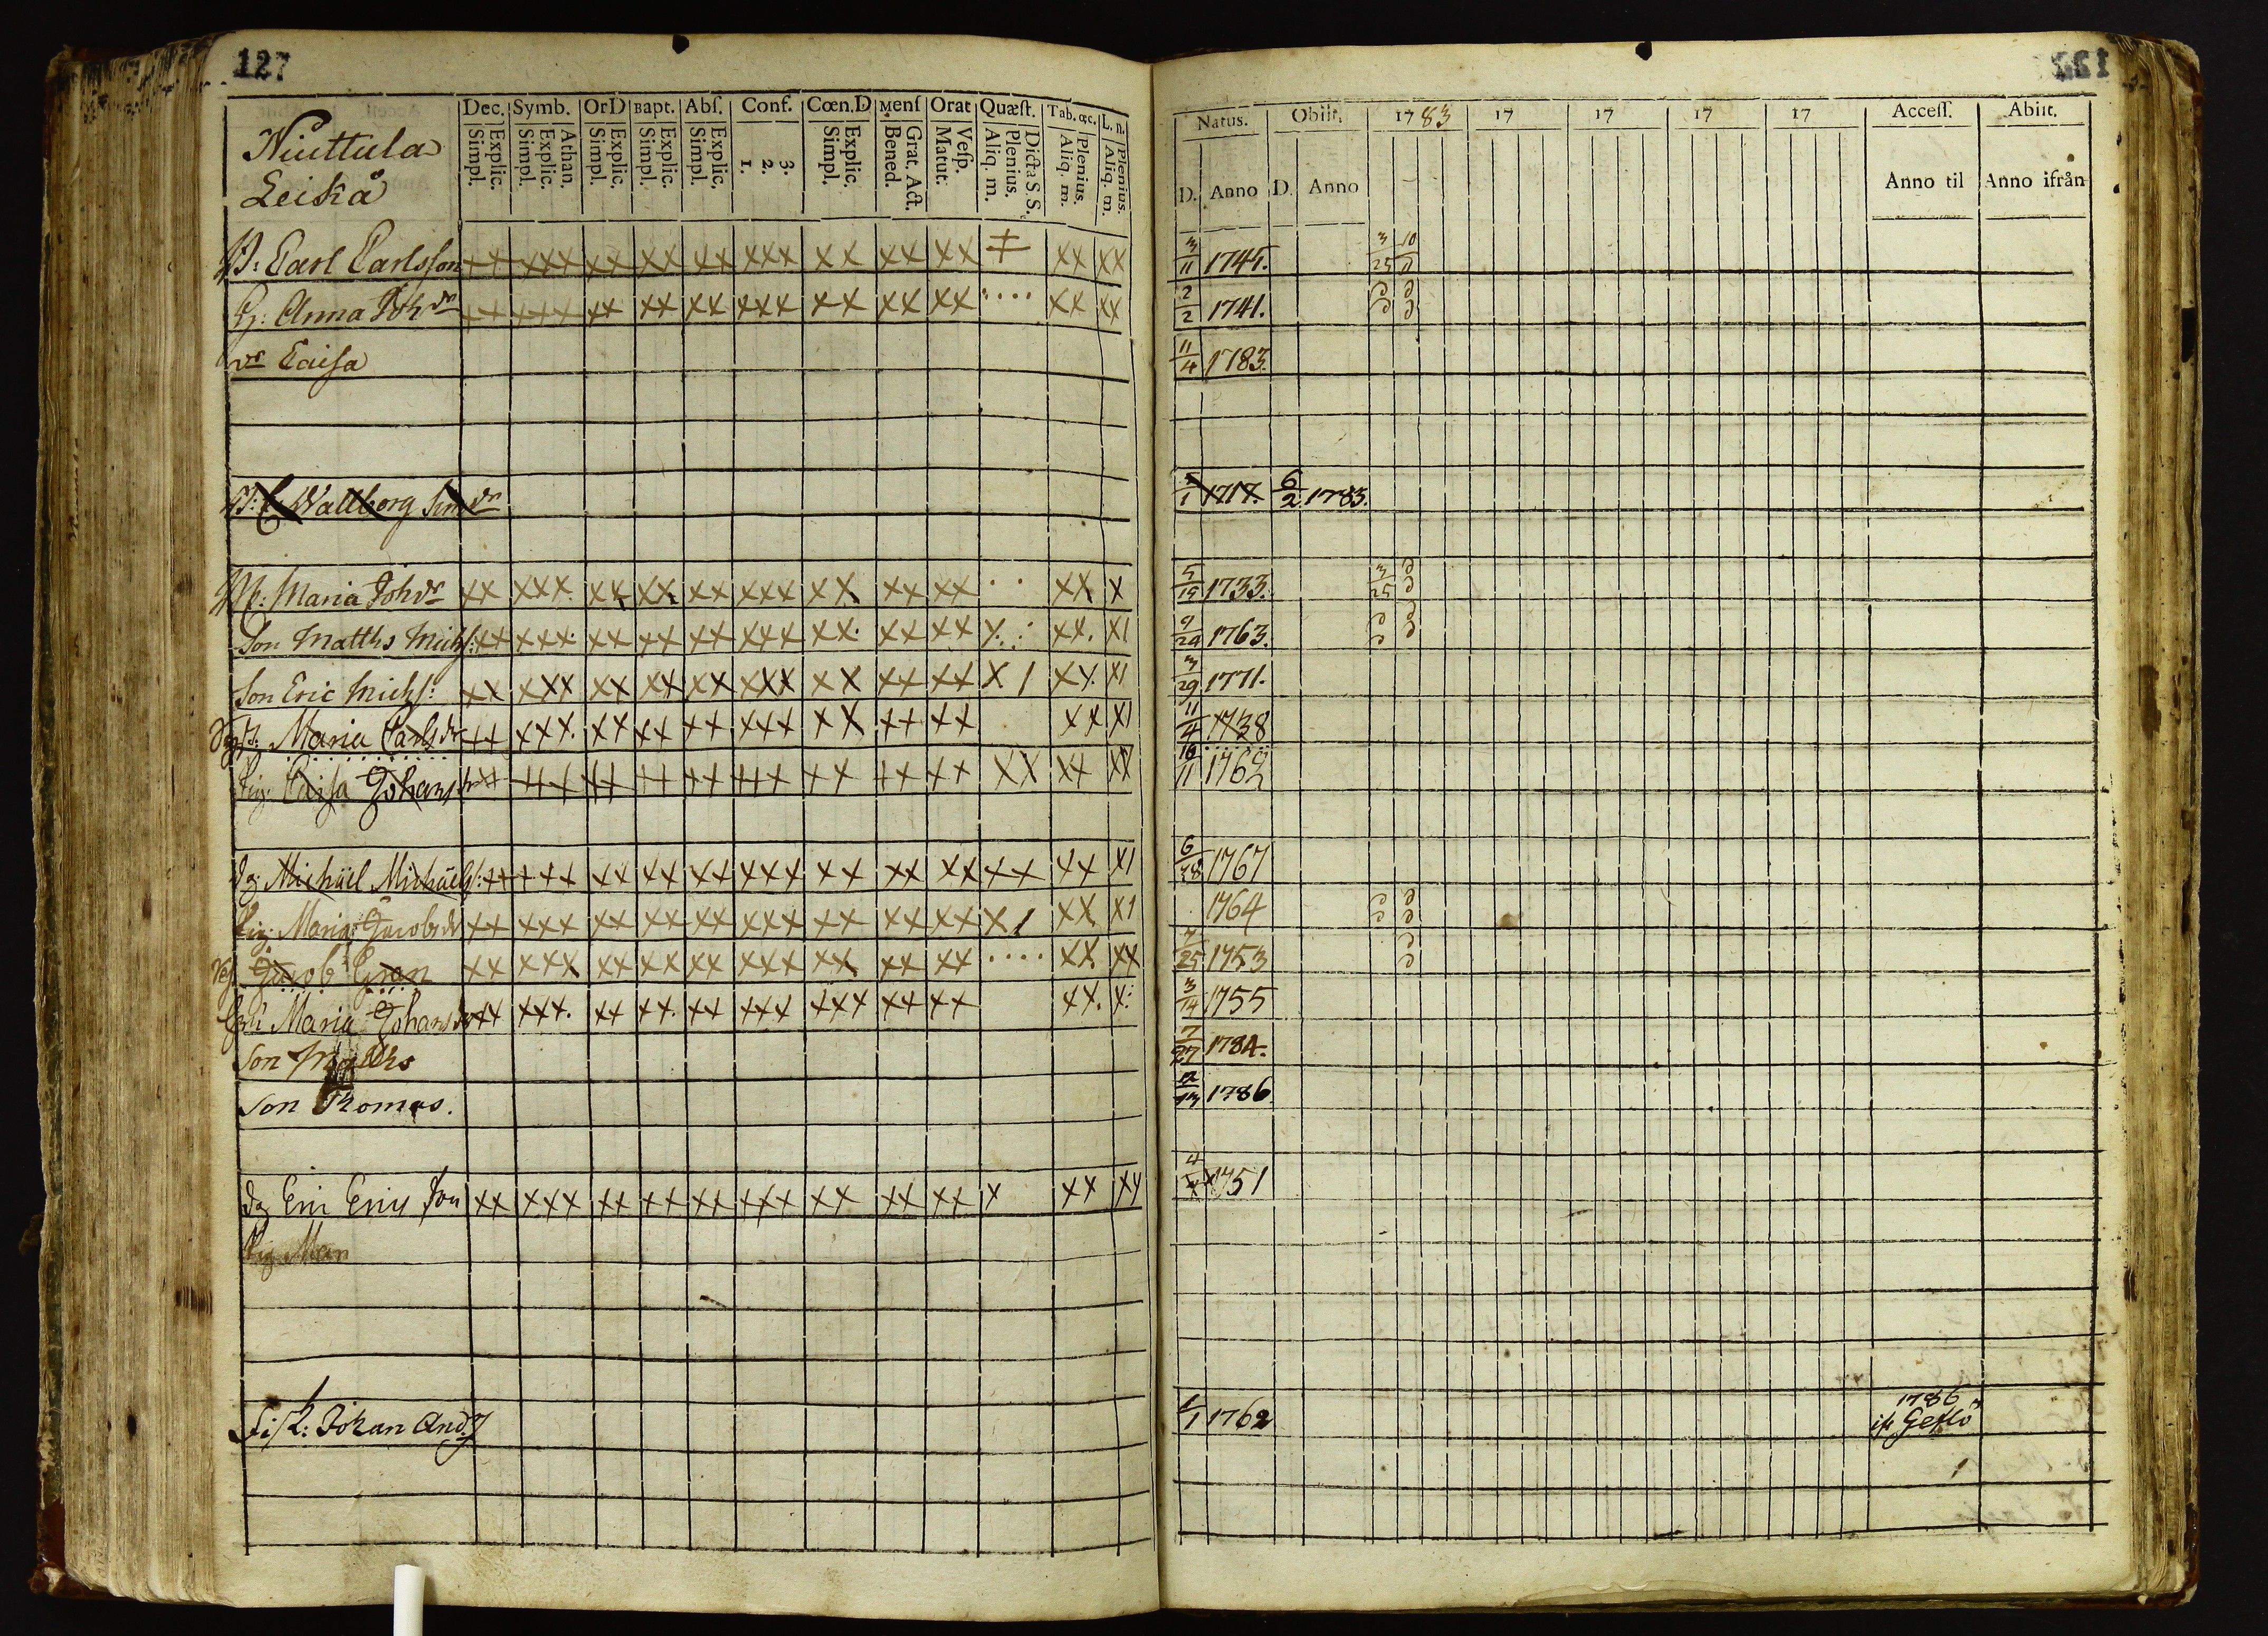 127
Dec. Symb. OrD Bapt. Abſ. Conf. Cœn.D Menſ Orat Quæſt. Tab. œc. L. n.
Explic. Simpl. Athan. Explic. Simpl. Explic. Simpl. Explic. Simpl. Explic. Simpl. 3. 2. 1. Explic. Simpl. Grat. Act. Bened. Veſp. Matut. Dicta S. S. Plenius. Aliq. m. Plenius. Aliq. m. Plenius. Aliq. m.
Natus. Obiit. 1783 17 17 17 17 Acceſſ. Abiit.
D. Anno D. Anno Anno til Anno ifrån
Niuttula
Leiskå
Carl Carlsson xx xxx xx xx xx xxx xx xx xx xx xx 3/11 1745. 3/25 10/11
Anna Joh dr xx xxx xx xx xx xxx xx xx xx xx xx 2/2 1741.
dr Caisa 11/4 1783.
Wallborg Sim dr 1717. 6/2 1783.
Maria Joh dr xx xxx xx xx xx xxx xx xx xx xx x 5/19 1733. 3/25
Son Matths Michs: xx xxx xx xx xx xxx xx xx xx xx. x1 9/24 1763.
Son Eric Michs: xx xxx xx xx xx xxx xx xx xx x / xx x1 3/29 1771.
Maria Carls dr xx xxx xx xx xx xxx xx xx xx xx x1 11/4 1738
Pig: Caisa Johans dr xx xxx xx xx xx xxx xx xx xx xx xx xx 16/11 1762
dg: Michäel Michäels: xx xxx xx xx xx xxx xx xx xx xx xx x1 6/18 1767
Pig: Maria Jacobs dr xx xxx xx xx xx xxx xx xx xx x / xx x1 1764
Jacob Gran xx xxx xx xx xx xxx xx xx xx xx xx 7/25 1753
Maria Johans dr xx xxx. xx xx. xx xxx xxx xx xx xx. x: 3/14 1755
Son Matths 7/27 1784.
Son Thomas. 12/13 1786.
dg Eric Erics Son xx xxx xx xx xx xxx xx xx xx x xx xx 1751
Pig Mar
Johan And. 1/1 1762 1786